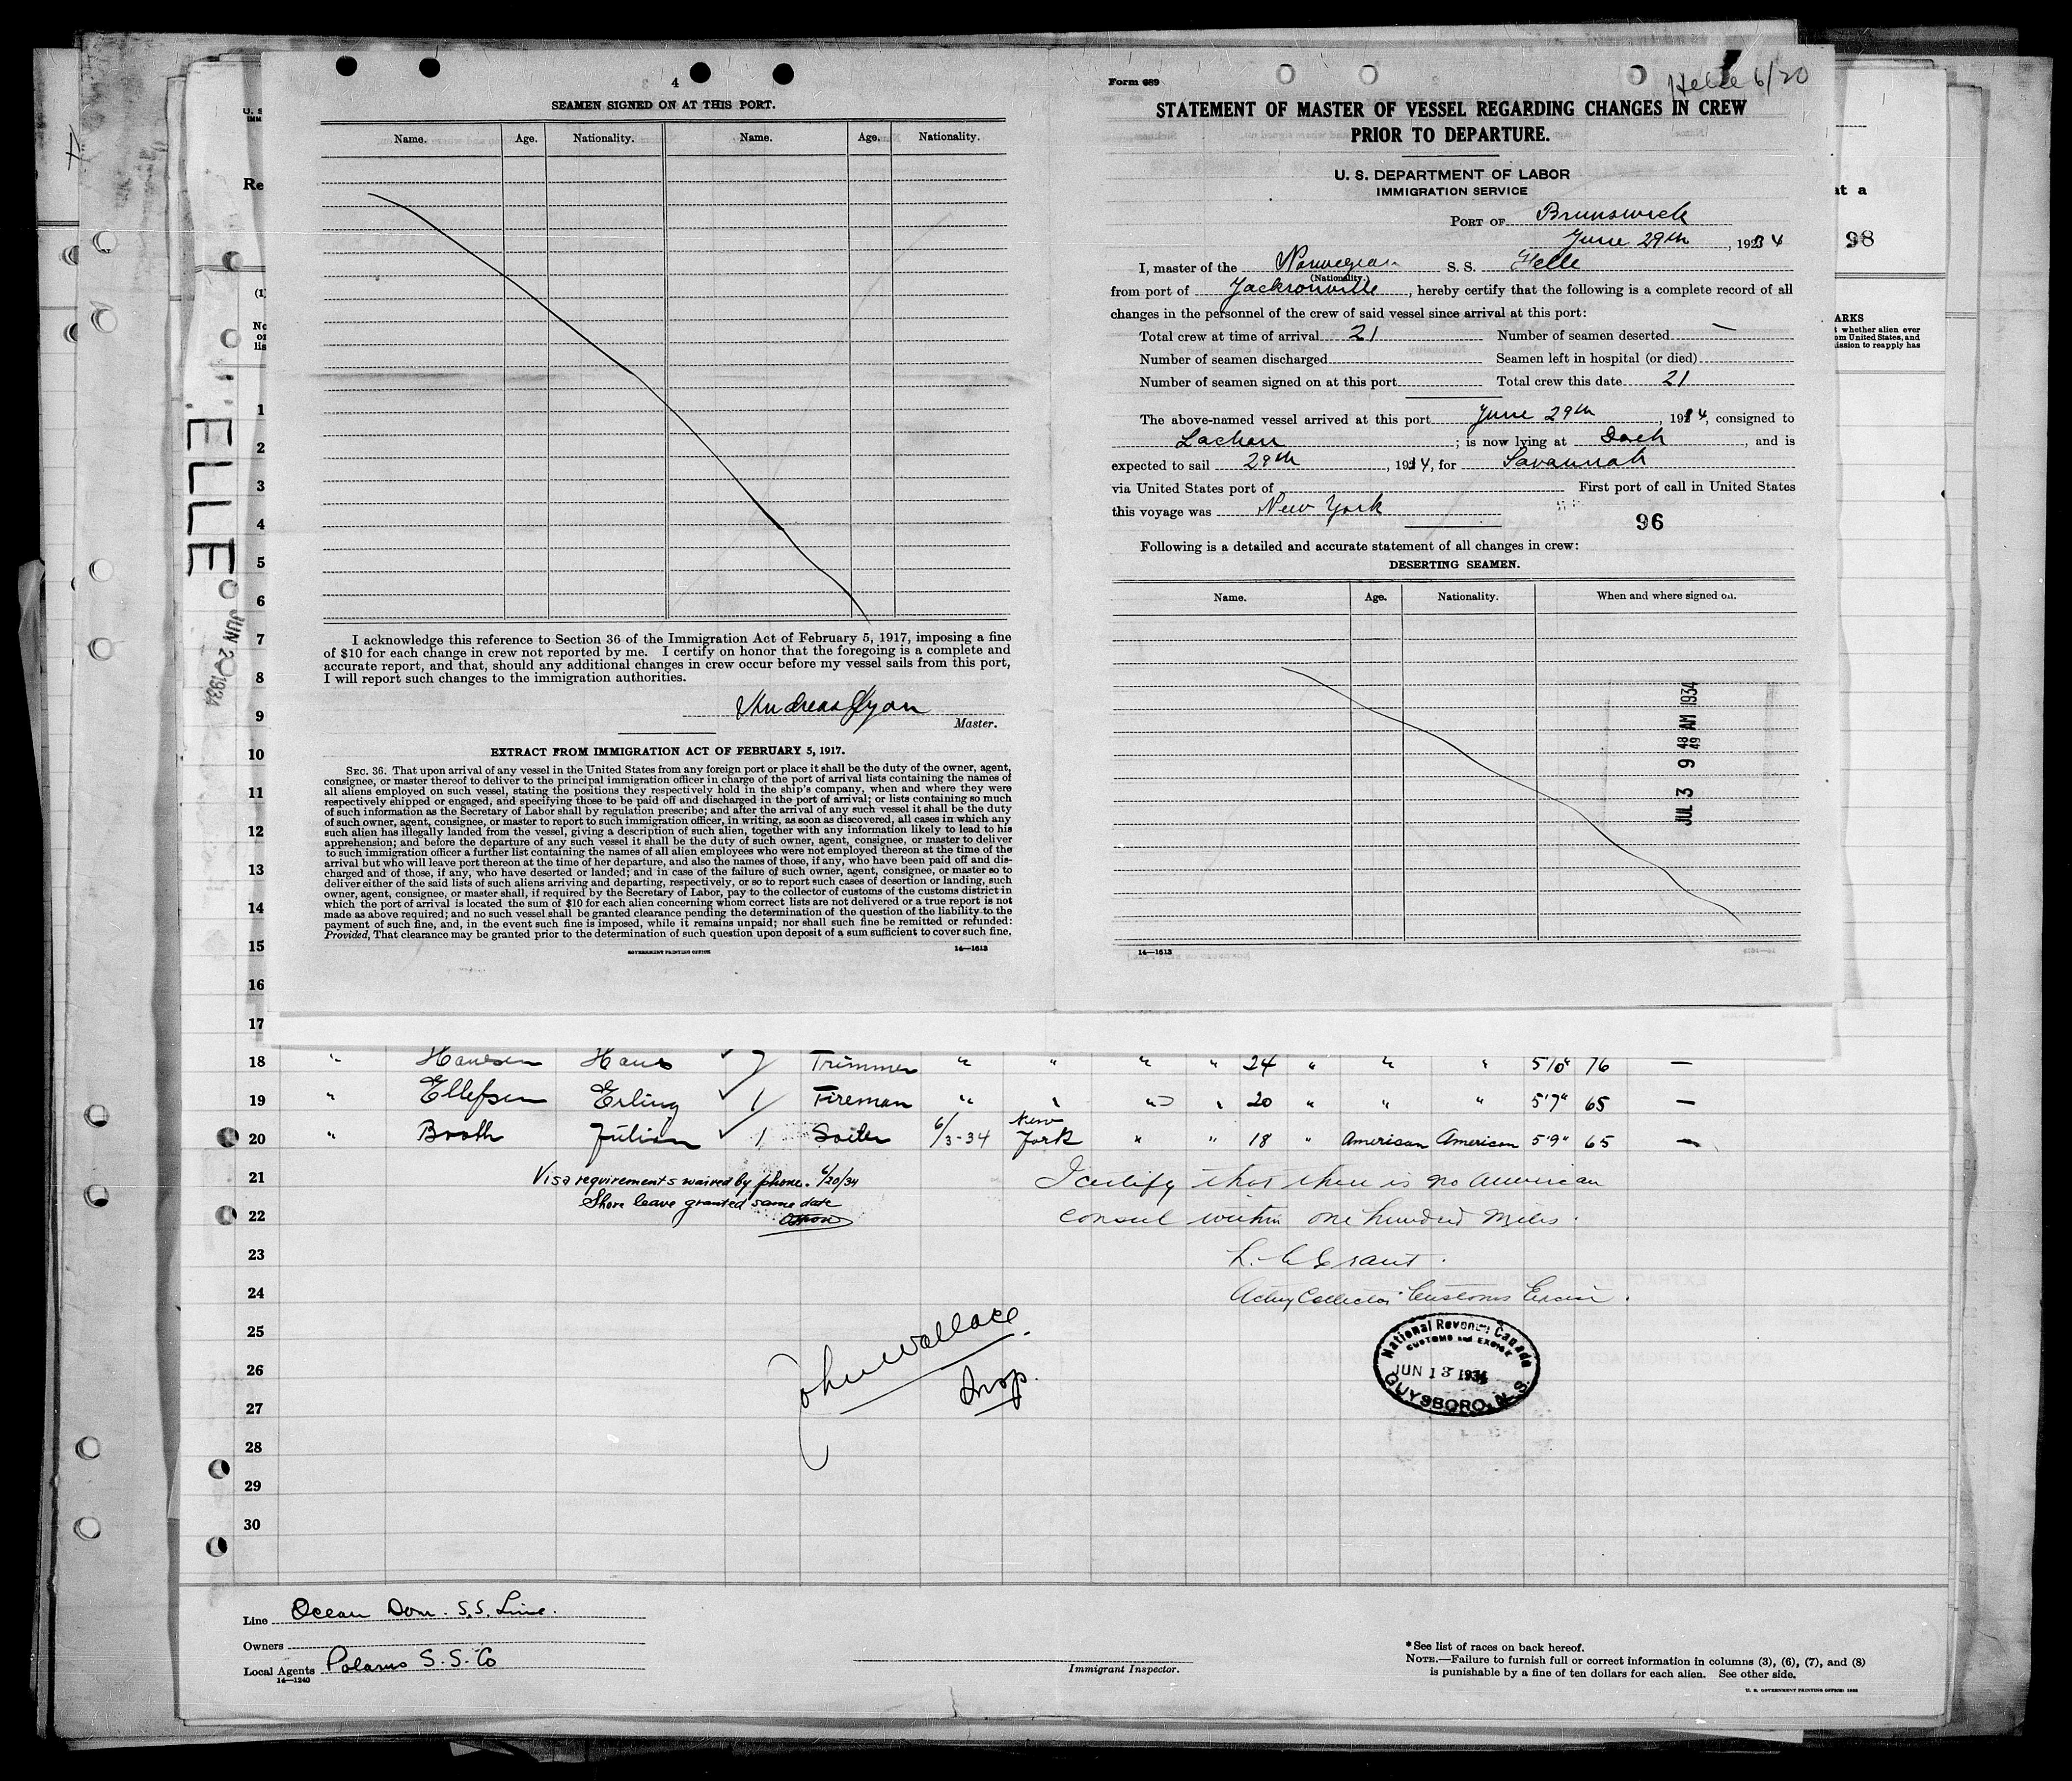 4
SEAMEN SIGNED ON AT THIS PORT.
Name. Age. Nationality. Name. Age. Nationality.
I acknowledge this reference to Section 36 of the Immigration Act of February 5, 1917, imposing a fine
of $10 for each change in crew not reported by me. I certify on honor that the foregoing is a complete and
accurate report, and that, should any additional changes in crew occur before my vessel sails from this port,
I will report such changes to the immigration authorities.
Master.
EXTRACT FROM IMMIGRATION ACT OF FEBRUARY 5, 1917.
SEC. 36. That upon arrival of any vessel in the United States from any foreign port or place it shall be the duty of the owner, agent,
consignee, or master thereof to deliver to the principal immigration officer in charge of the port of arrival lists containing the names of
all aliens employed on such vessel, stating the positions they respectively hold in the ship's company, when and where they were
respectively shipped or engaged, and specifying those to be paid off and discharged in the port of arrival; or lists containing so much
of such information as the Secretary of Labor shall by regulation prescribe; and after the arrival of any such vessel it shall be the duty
of such owner, agent, consignee, or master to report to such immigration officer, in writing, as soon as discovered, all cases in which any
such alien has illegally landed from the vessel, giving a description of such alien, together with any information likely to lead to his
apprehension; and before the departure of any such vessel it shall be the duty of such owner, agent, consignee, or master to deliver
to such immigration officer a further list containing the names of all alien employees who were not employed thereon at the time of the
arrival but who will leave port thereon at the time of her departure, and also the names of those, if any, who have been paid off and dis-
charged and of those, if any, who have deserted or landed; and in case of the failure of such owner, agent, consignee, or master so to
deliver either of the said lists of such aliens arriving and departing, respectively, or so to report such cases of desertion or landing, such
owner, agent, consignee, or master shall, if required by the Secretary of Labor, pay to the collector of customs of the customs district in
which the port of arrival is located the sum of $10 for each alien concerning whom correct lists are not delivered or a true report is not
made as above required; and no such vessel shall be granted clearance pending the determination of the question of the liability to the
payment of such fine, and, in the event such fine is imposed, while it remains unpaid; nor shall such fine be remitted or refunded:
Provided, That clearance may be granted prior to the determination of such question upon deposit of a sum sufficient to cover such fine.
GOVERNMENT PRINTING OFFICE 14—1613
Form 689
Helle 6/20
STATEMENT OF MASTER OF VESSEL REGARDING CHANGES IN CREW
PRIOR TO DEPARTURE.
U. S. DEPARTMENT OF LABOR
IMMIGRATION SERVICE
PORT OF Brunswick
June 29th, 1934
I, master of the Norwegian S. S. Helle
(Nationality.)
from port of Jacksonville, hereby certify that the following is a complete record of all
changes in the personnel of the crew of said vessel since arrival at this port:
Total crew at time of arrival 21 Number of seamen deserted —
Number of seamen discharged Seamen left in hospital (or died)
Number of seamen signed on at this port Total crew this date 21
The above-named vessel arrived at this port June 29th, 1934, consigned to
; is now lying at Dock, and is
expected to sail 29th, 1934, for Savannah
via United States port of First port of call in United States
this voyage was New York
96
Following is a detailed and accurate statement of all changes in crew:
DESERTING SEAMEN.
Name. Age. Nationality. When and where signed on.
JUL 3 9 48 AM 1934
14—1613
at a
98
ARKS
whether alien ever
om United States, and
ission to reapply has
Re
(1)
ELLE
1
2
3
4
5
6
7
8
9
10
11
12
13
14
15
16
17
18 " Hansen Hans ✓ 7 Trimmer " " " " 24 " " " 5'10" 76 —
19 " Ellefsen Erling ✓ 1 Fireman " " " " 20 " " " 5'7" 65 —
20 " Booth Julian ✓ 1 6/3-34 New York " " 18 " American American 5'9" 65 —
21 Visa requirements waived by phone. 6/20/34 I certify that there is no American
22 Shore leave granted same date consul within one hundred miles.
23 Grant.
24 Acting Collector Customs Excise.
25 John Wallace
26 Insp.
27
28
29
30
National Revenue Canada
CUSTOMS and EXCISE
JUN 13 1934
GUYSBORO, N. S.
Line Ocean Dom. S.S. Line.
Owners
Local Agents Polarus S.S. Co
14—1240
Immigrant Inspector.
*See list of races on back hereof.
NOTE.—Failure to furnish full or correct information in columns (3), (6), (7), and (8)
is punishable by a fine of ten dollars for each alien. See other side.